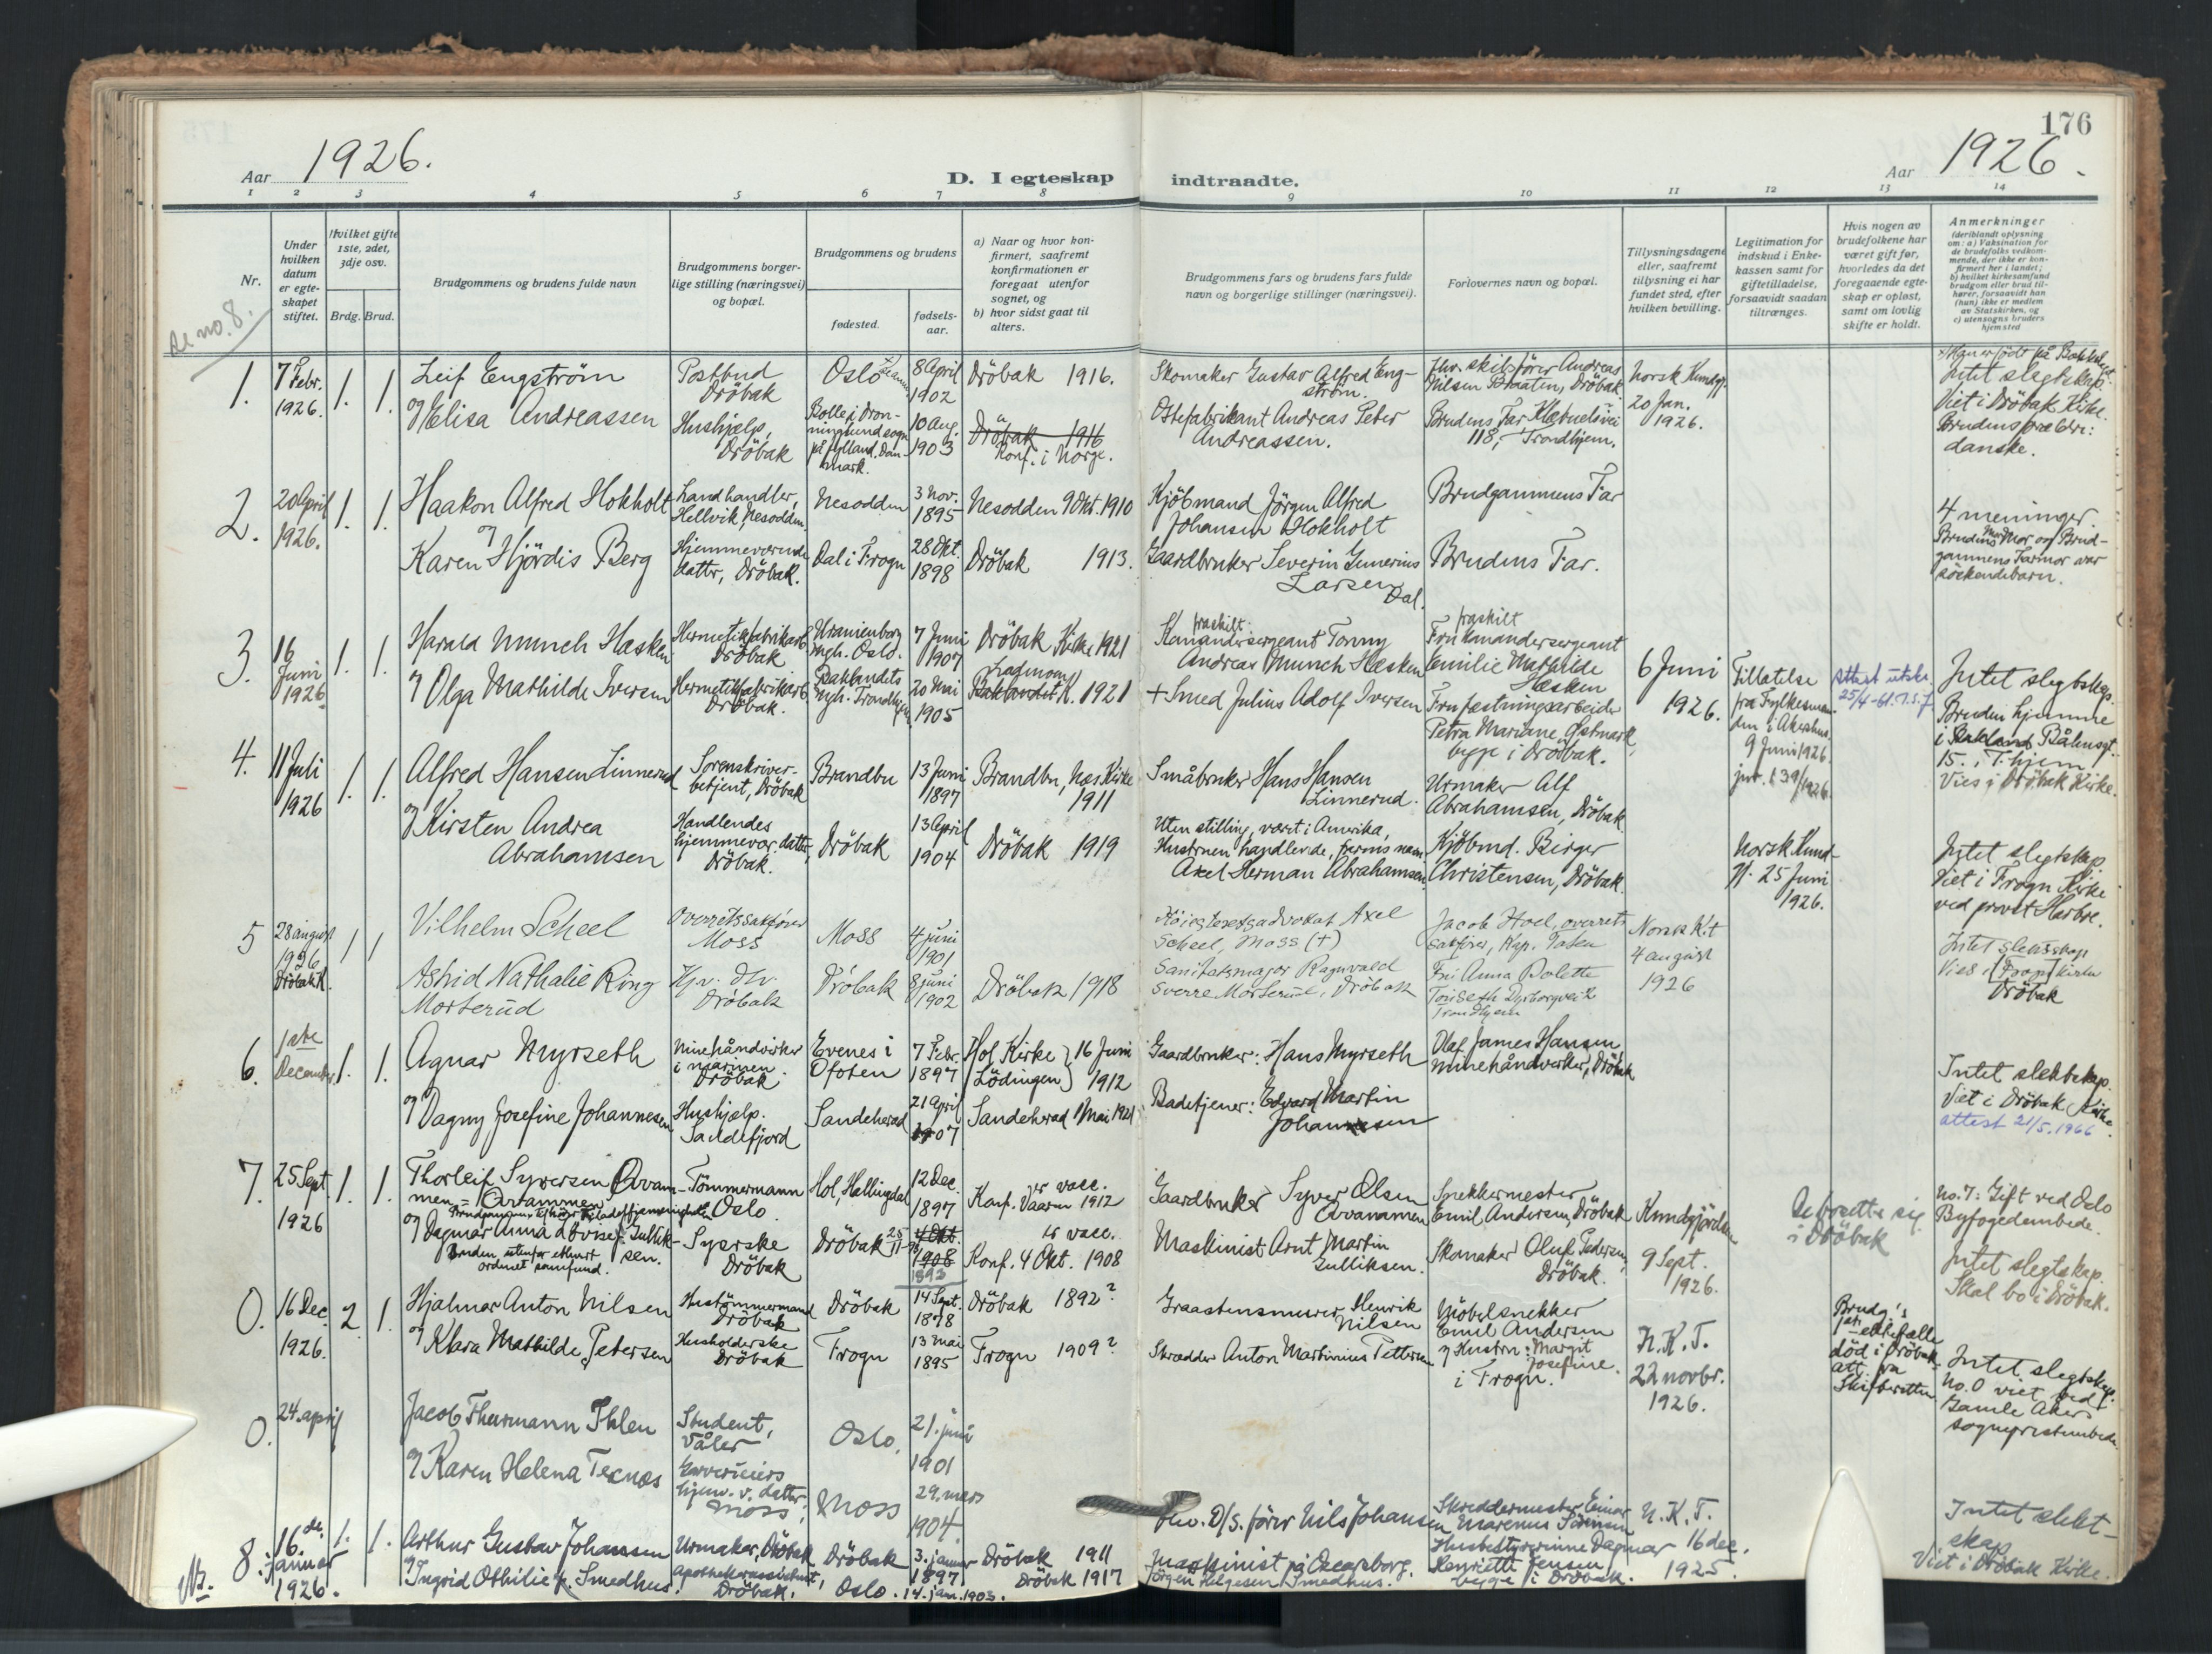 176
Aar 1926.
D. I egteskap indtraadte.
Aar 1926.
1 2 3 4 5 6 7 8 9 10 11 12 13 14
Nr.
Under hvilken datum er egteskapet stiftet.
Hvilket gifte 1ste, 2det, 3dje osv.
Brdg. Brud.
Brudgommens og brudens fulde navn
Brudgommens borgerlige stilling (næringsvei) og bopæl.
Brudgommens og brudens
fødested.
fødselsaar.
a) Naar og hvor konfirmert, saafremt konfirmationen er foregaat utenfor sognet, og
b) hvor sidst gaat til alters.
Brudgommens fars og brudens fars fulde navn og borgerlige stillinger (næringsvei).
Forlovernes navn og bopæl.
Tillysningsdagene eller, saafremt tillysning ei har fundet sted, efter hvilken bevilling.
Legitimation for indskud i Enkekassen samt for giftetilladelse, forsaavidt saadan tiltrænges.
Hvis nogen av brudefolkene har været gift før, hvorledes da det foregaaende egteskap er opløst, samt om lovlig skifte er holdt.
Anmerkninger (deriblandt oplysning om: a) Vaksination for de brudefolks vedkommende, der ikke er konfirmert her i landet; b) hvilket kirkesamfund brudgom eller brud tilhører, forsaavidt han (hun) ikke er medlem av Statskirken, og c) utensogns bruders hjemsted
Se no. 8.
1. 7 Febr. 1926. 1. 1.
Leif Engström
Postbud Dröbak
Oslo
8 April 1902
Dröbak 1916.
Skomaker Gustav Alfred Engström.
fhv. skibsfører Andreas Nilsen Braaten, Dröbak.
Norsk Kundgj. 20 Jan. 1926.
Intet slegtskap.
Viet i Dröbak Kirke.
Brudens forældre: danske.
og Elisa Andreassen
Hushjælp, Dröbak
10 Aug. 1903
Dröbak 1916
Konf. i Norge.
Ostefabrikant Andreas Peter Andreassen.
Brudens Far 118, Trondhjem.
2. 20 April 1926. 1. 1.
Haakon Alfred Hokholt
Landhandler, Hellvik, Nesodden.
Nesodden
3 Nov. 1895
Nesodden 9 Okt. 1910
Kjöbmand Jörgen Alfred Johansen Hokholt
Brudgammens Far
4 meninger.
Brudens Mor og Brudgammens Farmor var söskendebarn.
og Karen Hjördis Berg
Hjemmeværende datter, Dröbak.
Dal i Frogn
28 Okt. 1898
Dröbak 1913.
Gaardbruker Severin Gunerius Larsen Dal.
Brudens Far.
3. 16 Juni 1926 1. 1.
Harald Munch Hæsken
Hermetikfabrikarb. Dröbak
Uranienborg mgh. Oslo.
7 Juni 1907
Dröbak Kirke 1921
fraskilt
Andreas Munch Hæsken
fraskilt
Fru Kmandersergeant Emilie Mathilde Hæsken
6 Juni 1926.
Tillatelse fra Fylkesmanden i Akershus. 9 Juni 1926.
Attest utskr. 25/4-61.
Intet slegtskap.
Bruden hjemme i Bakland 15., T.hjem.
Vies i Dröbak Kirke.
og Olga Mathilde Iversen
Hermetikfabrikarb. Dröbak.
Baklandets mgh. Trondhjem
20 Mai 1905
Baklandet K. 1921
+ Smed Julius Adolf Iversen
Fru fæstningsarbeider Petra Mariane Östmark, begge i Dröbak.
4. 11 Juli 1926 1. 1.
Alfred Hansen Linnerud
Sorenskriverbetjent, Dröbak
Brandbu
13 Juni 1897
Brandbu, Næs Kirke 1911
Småbruker Hans Hansen Linnerud.
Urmaker Alf Abrahamsen, Dröbak
Norsk Kundgj. 25 Juni 1926.
Intet slegtskap.
Viet i Frogn Kirke ved provst Harbre.
og Kirsten Andrea Abrahamsen
Handlendes hjemmevær. datter, Dröbak.
Dröbak
13 April 1904
Dröbak 1919
Uten stilling, været i Amerika, Hustruen handlende, Axel Herman Abrahamsen
Kjöbmd. Birger Christensen, Dröbak.
5 28 august 1926 Dröbak K. 1 1
Vilhelm Scheel
Overretssakfører Moss
Moss
4 juni 1901
Höiesteretsadvokat Axel Scheel, Moss (+)
Jacob Hoel, overretssakfører,
Norsk K.t 4 august 1926
Intet slektskap
Vies i [Frogn] kirke Dröbak
Astrid Nathalie Ring Morterud
Hjv. dtr Dröbak
Dröbak
8 juni 1902
Dröbak 1918
Sanitetsmajor Ragnvald Sverre Morterud, Dröbak
Fru Anna Bolette Trondhjem
6. 1ste December. 1. 1.
Agnar Myrseth
Minehåndverker i marinen. Dröbak
Evenes i Ofoten
7 Febr. 1897
Hol Kirke (Lödingen) 16 Juni 1912
Gaardbruker: Hans Myrseth
Olaf James Hansen minehåndverker, Dröbak
Intet slektskap.
Viet i Dröbak Kirke.
attest 21/5.1966
og Dagny Josefine Johannesen
Hushjælp. Sandefjord
Sandeherad
21 April 1907
Sandeherad 1 Mai 1921
Badetjener: Edvard Martin Johannesen
7. 25 Sept. 1926 1. 1.
Thorleif Syversen
Tömmermann Oslo.
Hol, Hallingdal
12 Dec. 1897
er vacc.
Konf. Vaaren 1912
Gaardbruker Syver Olsen
Snekkermester Emil Andersen, Dröbak
Kundgjörelse 9 Sept. 1926.
De bosetter sig i Dröbak
No. 7: Gift ved Oslo Byfogedembede.
Intet slegtskap.
Skal bo i Dröbak.
og Dagmar Anna Gulliksen.
Bruden utenfor ethvert ordnet samfund.
Syerske Dröbak
Dröbak
4 Okt. 1908
1893
er vacc.
Konf. 4 Okt. 1908
Maskinist Arnt Martin Gulliksen.
Skomaker Oluf Pedersen, Dröbak.
0. 16 Dec. 1926. 2 1.
Hjalmar Anton Nilsen
Hustömmermand Dröbak
Dröbak
14 Sept. 1878
Dröbak 1892?
Graastensmurer Henrik Nilsen
Möbelsnekker Emil Andersen og Hustru: Margit Josefine. i Frogn.
N.K.T. 22 novbr. 1926.
Brudg's 1ste ektefælle död i Dröbak, att. fra Skifteretten
Intet slegtskap.
No. 0 viet ved Gamle Akers sogneprestembede.
og Klara Mathilde Petersen
Husholderske Dröbak
Frogn
13 Mai 1895
Frogn 1909?
Skrædder Anton Martinius Pettersen
0. 24. april
Jacob Thurmann Ihlen
Student, Våler
Oslo.
21. juni 1901
og Karen Helena Teknæs
hjem. v. datter, Moss
Moss
29. mars 1904
Nb. 8. 16. de. januar 1926. 1. 1.
Arthur Gustav Johansen
Urmaker, Dröbak
Dröbak
3. januar 1897
Dröbak 1911
fhv. D/S. förer Nils Johansen
Skreddermester Einar Marenus Sörensen
N.K.T. 16 dec. 1925.
Intet slektskap.
Viet i Dröbak Kirke.
og Ingrid Othilie Smedhus.
Dröbak.
Oslo. 14. jan. 1903.
Dröbak 1917
Maskinist på Oscarsborg. Jörgen Helgesen Smedhus.
Husbestyrerinne Dagmar Henriette Jensen begge i Dröbak.